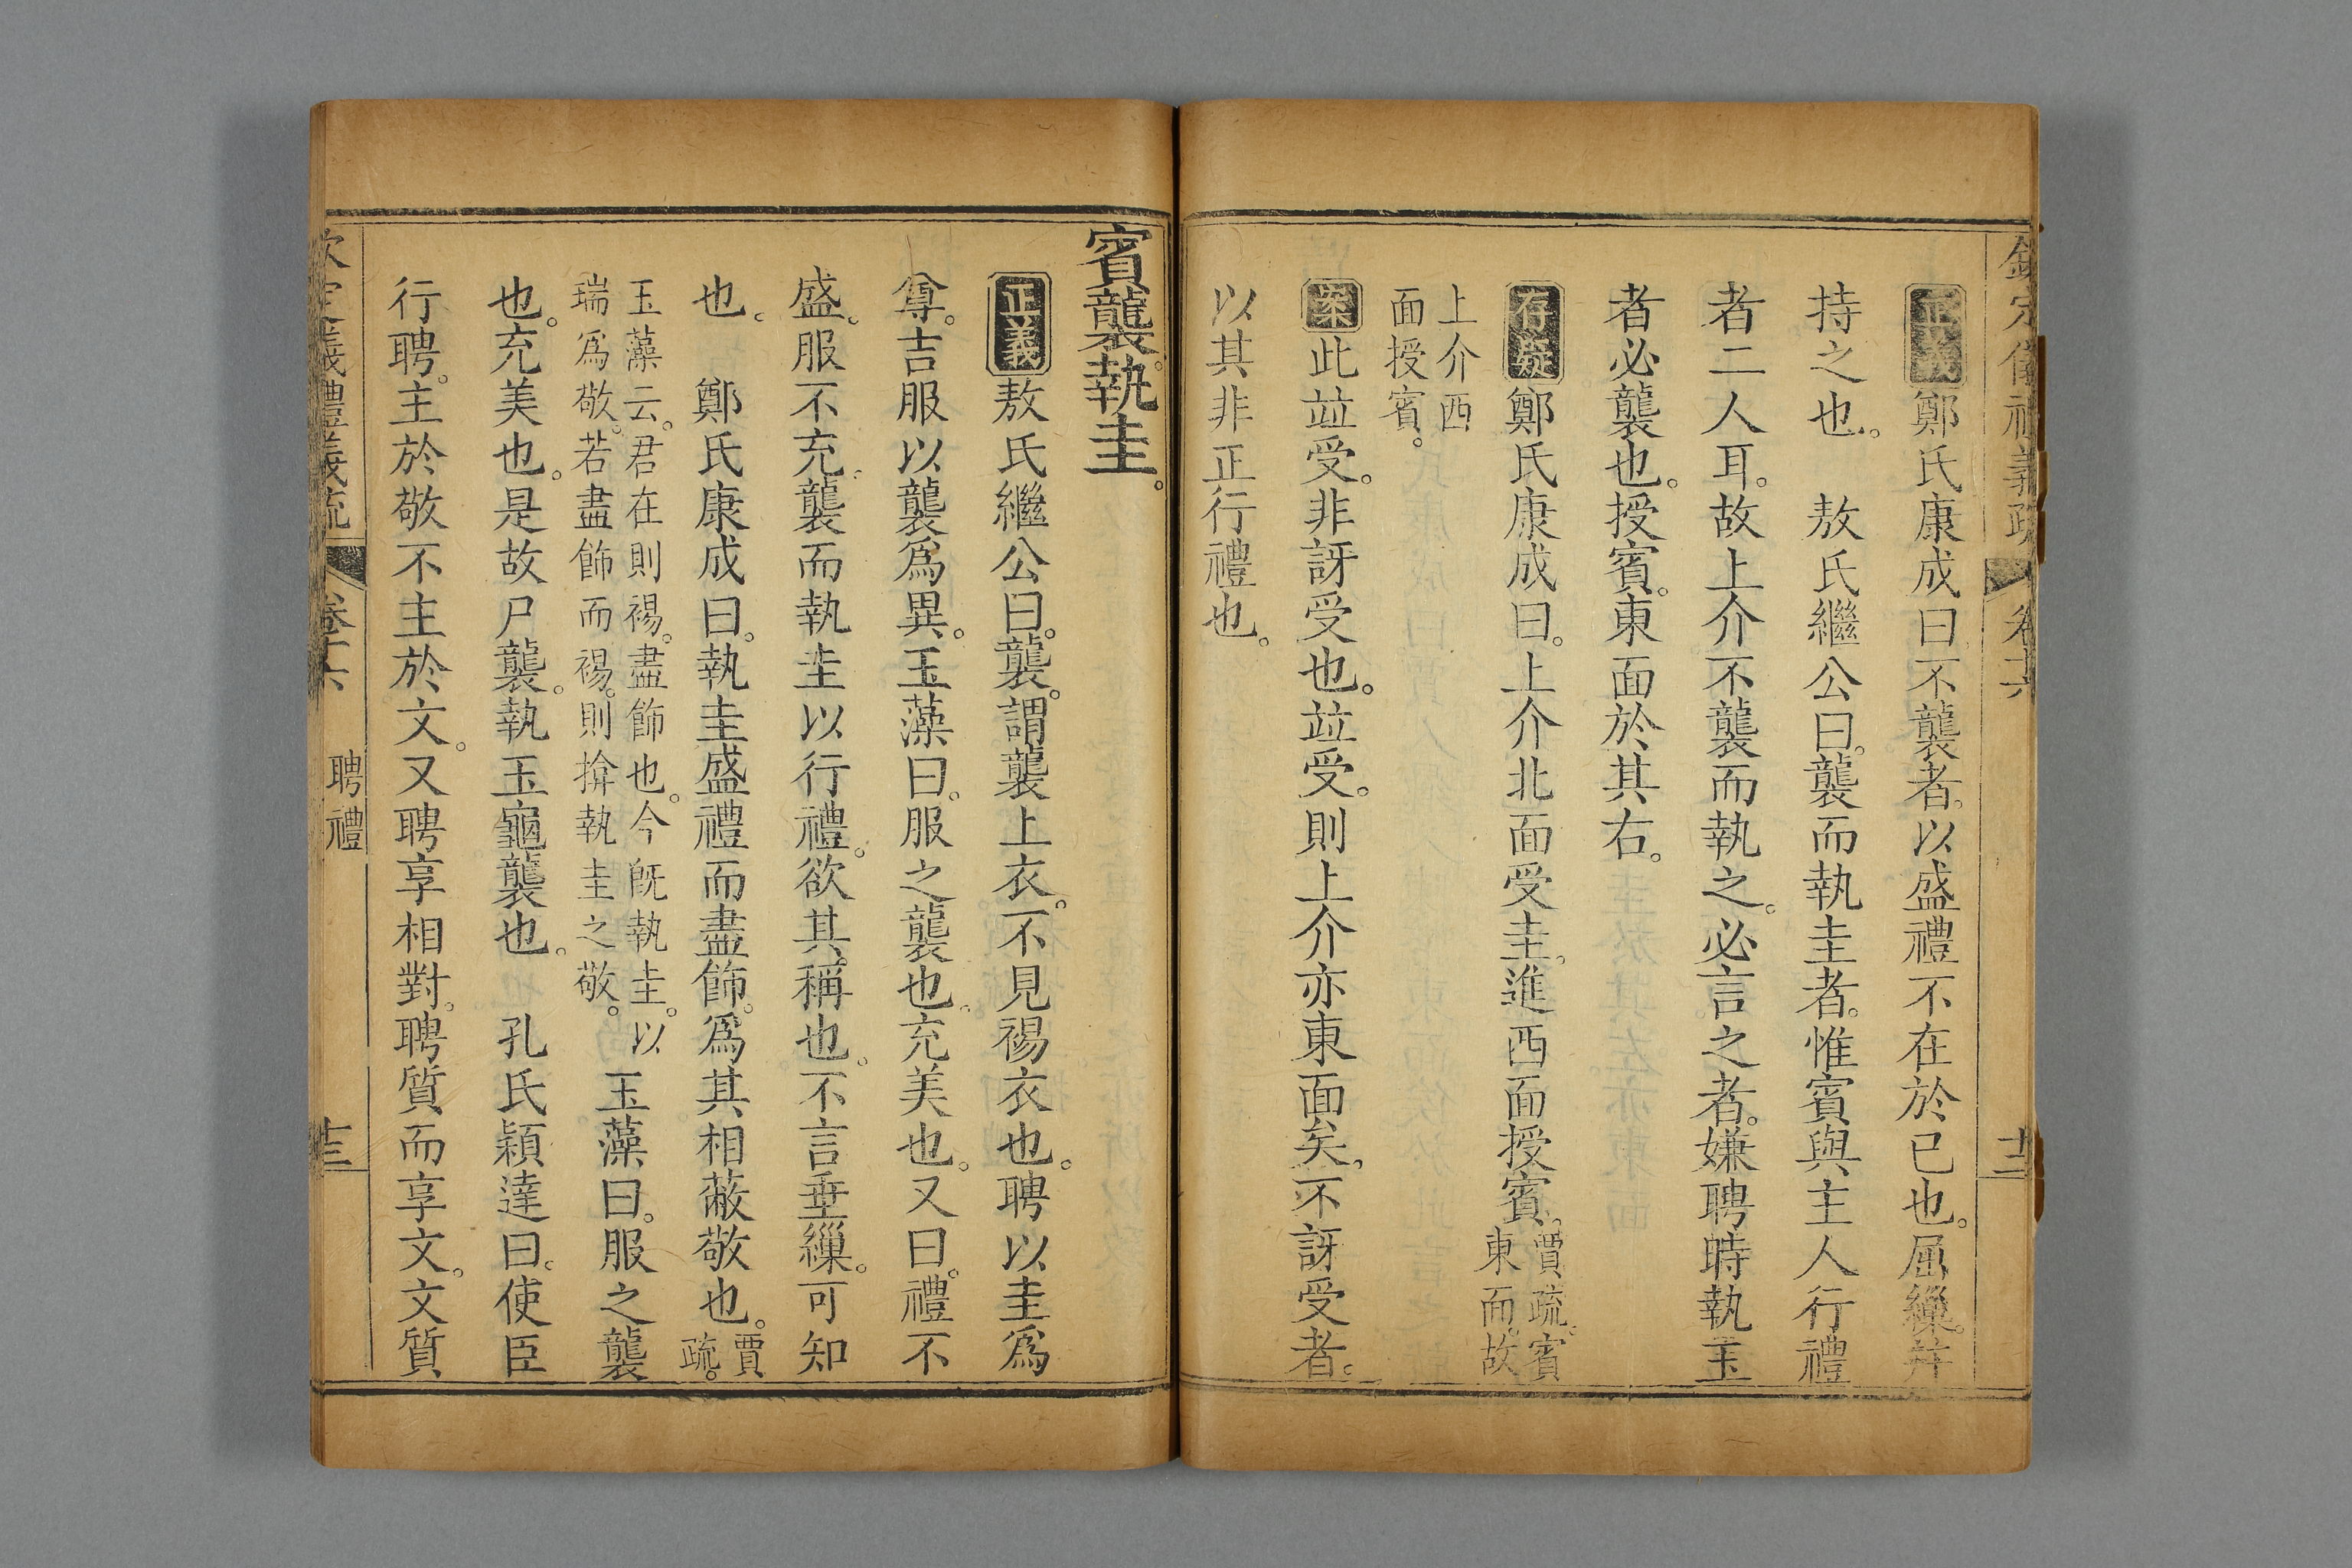 欽定儀禮義疏 卷十六
正義鄭氏康成曰不襲者。以盛禮不在於已也。屈繅。幷
持之也。 敖氏繼公曰。襲而執圭者。惟賓與主人行禮
者二人耳。故上介不襲而執之。必言之者。嫌聘時執玉
者必襲也。授賓。東面於其右。
存疑鄭氏康成曰。上介北面受圭。進西面授賓。賈疏。賓
東面。故
上介西
面授賓。
案此竝受。非訝受也。竝受。則上介亦東面矣。不訝受者。
以其非正行禮也。
賓襲。執圭。
正義敖氏繼公曰。襲。謂襲上衣。不見裼衣也。聘以圭爲
尊。吉服以襲爲異。玉藻曰。服之襲也。充美也。又曰。禮不
盛。服不充。襲而執圭以行禮。欲其稱也。不言垂繅。可知
也。 鄭氏康成曰。執圭盛禮而盡飾。爲其相蔽敬也。賈
疏。
玉藻云。君在則裼。盡飾也。今旣執圭。以
瑞爲敬。若盡飾而裼。則揜執圭之敬。 玉藻曰。服之襲
也。充美也。是故尸襲。執玉龜襲也。 孔氏穎達曰。使臣
行聘。主於敬不主於文。又聘享相對。聘質而享文。文質
欽定儀禮義疏 卷十六 聘禮